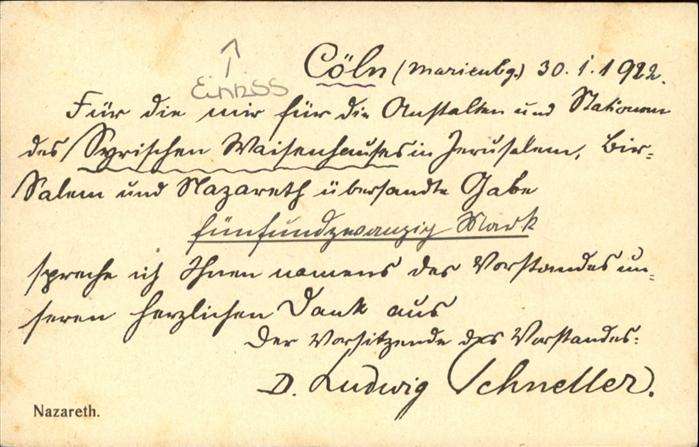 Einriss
Cöln (Marienbg.) 30. 1. 1922.
Für die mir für die Anstalten und Stationen
des Syrischen Waisenhauses in Jerusalem, Bir-
Salem und Nazareth übersandte Gabe
fünfundzwanzig Mark
spreche ich Ihnen namens des Vorstandes un-
seren herzlichen Dank aus
Der Vorsitzende des Vorstandes:
D. Ludwig Schneller.
Nazareth.